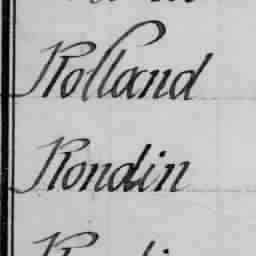 Rolland
Rondin